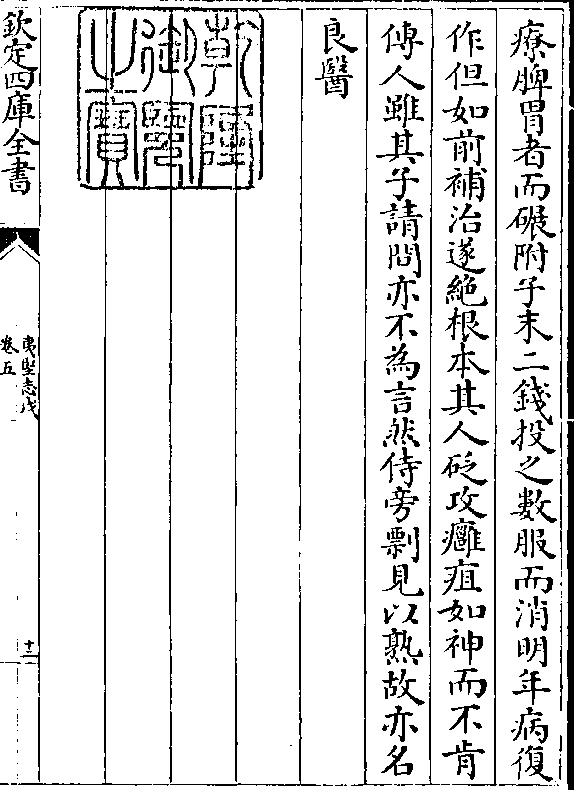 療脾胃者而碾附子末二錢投之數服而消明年病復
作但如前補治遂絶根本其人砭攻癰疽如神而不肯
傳人雖其子請問亦不為言然侍旁剽見以熟故亦名
良醫
乾隆御覽之寶
欽定四庫全書
夷堅志戊
卷五
十二